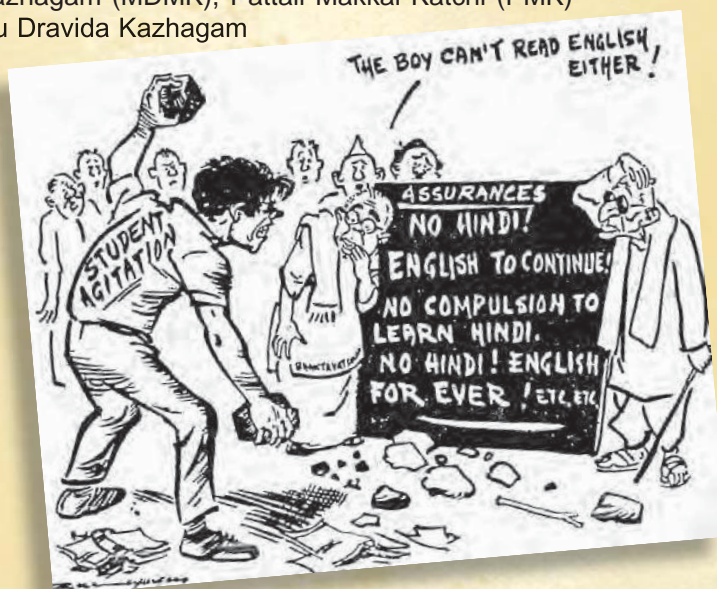 azhagam (MDMK), Pattali Makkal Katchi (PMK)
u Dravida Kazhagam
THE BOY CAN'T READ ENGLISH
EITHER!
STUDENT
AGITATION
ASSURANCES
NO HINDI!
ENGLISH TO CONTINUE!
NO COMPULSION TO
LEARN HINDI.
NO HINDI! ENGLISH
FOR EVER! ETC, ETC